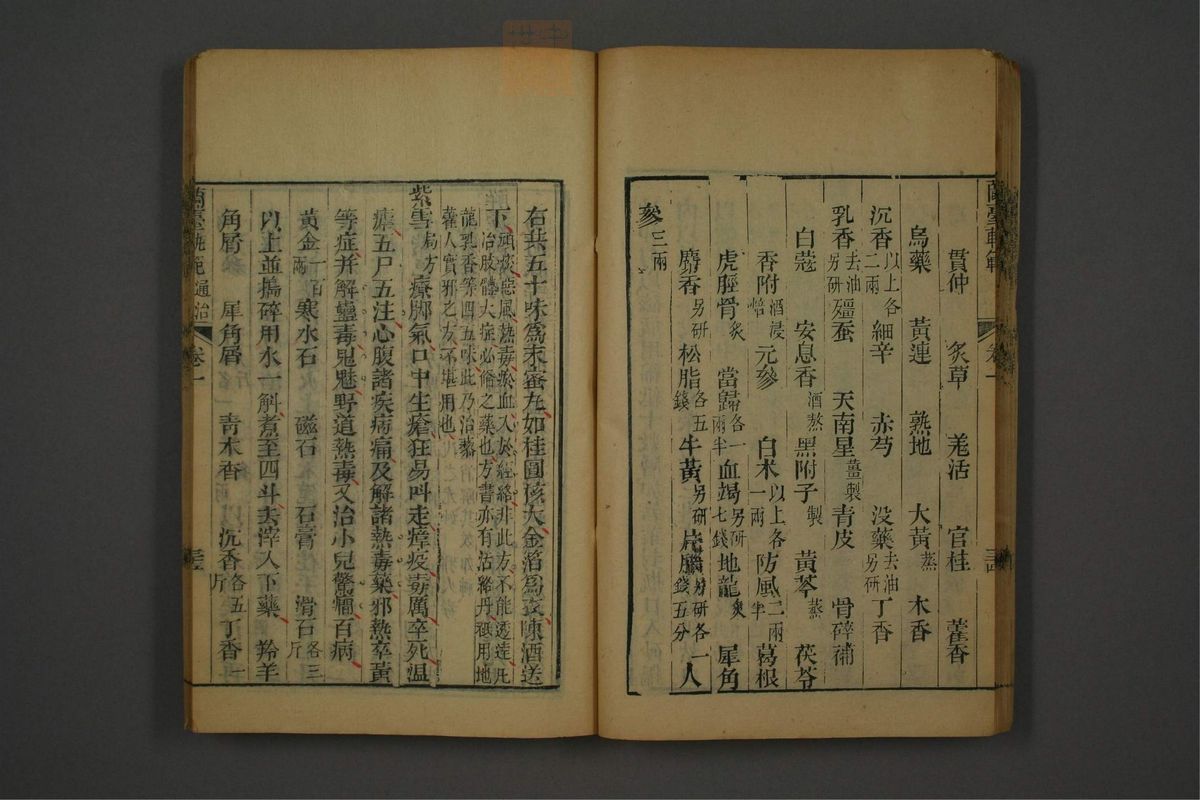 蘭臺軌範 卷一 三四
貫仲 炙草 羗活 官桂 藿香
烏藥 黃連 熟地 大黃蒸 木香
沉香以上各二兩 細辛 赤芍 没藥去油另研 丁香
乳香去油另研 殭蚕 天南星薑製 青皮 骨碎補
白蔻 安息香酒熬 黑附子製 黃芩蒸 茯苓
香附酒浸焙 元參 白朮以上各一兩 防風二兩半 葛根
虎脛骨炙 當歸各一兩半 血竭另研七錢 地龍炙 犀角
麝香另研 松脂各五錢 牛黃另研 片腦另研各錢五分 人
參三兩
右共五十味爲末蜜丸如桂圓核大金箔爲衣陳酒送
下頑痰惡風熱毒瘀血入於經絡非此方不能透達凡治肢體大症必備之藥也方書亦有活絡丹秪用地
龍乳香等四五味此乃治藜藿人實邪之方不堪用也
紫雪局方 療脚氣口中生瘡狂易叫走瘴疫毒厲卒死温
瘧五尸五注心腹諸疾㽲痛及解諸熱毒藥邪熱卒黃
等症并解蠱毒鬼魅野道熱毒又治小兒驚癇百病
黃金一百兩 寒水石 磁石 石膏 滑石各三斤
以上並搗碎用水一斛煮至四斗去滓入下藥 羚羊
角屑 犀角屑 青木香 沉香各五斤 丁香一
蘭臺軌範 通治 卷一